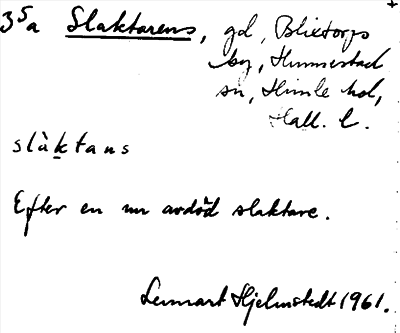 3⁵a Slaktarens, gd, Blixtorps
by, Hunnestad
sn, Himle hd,
Hall. l.
slàktans
Efter en nu avdöd slaktare.
Lennart Hjelmstedt 1961.